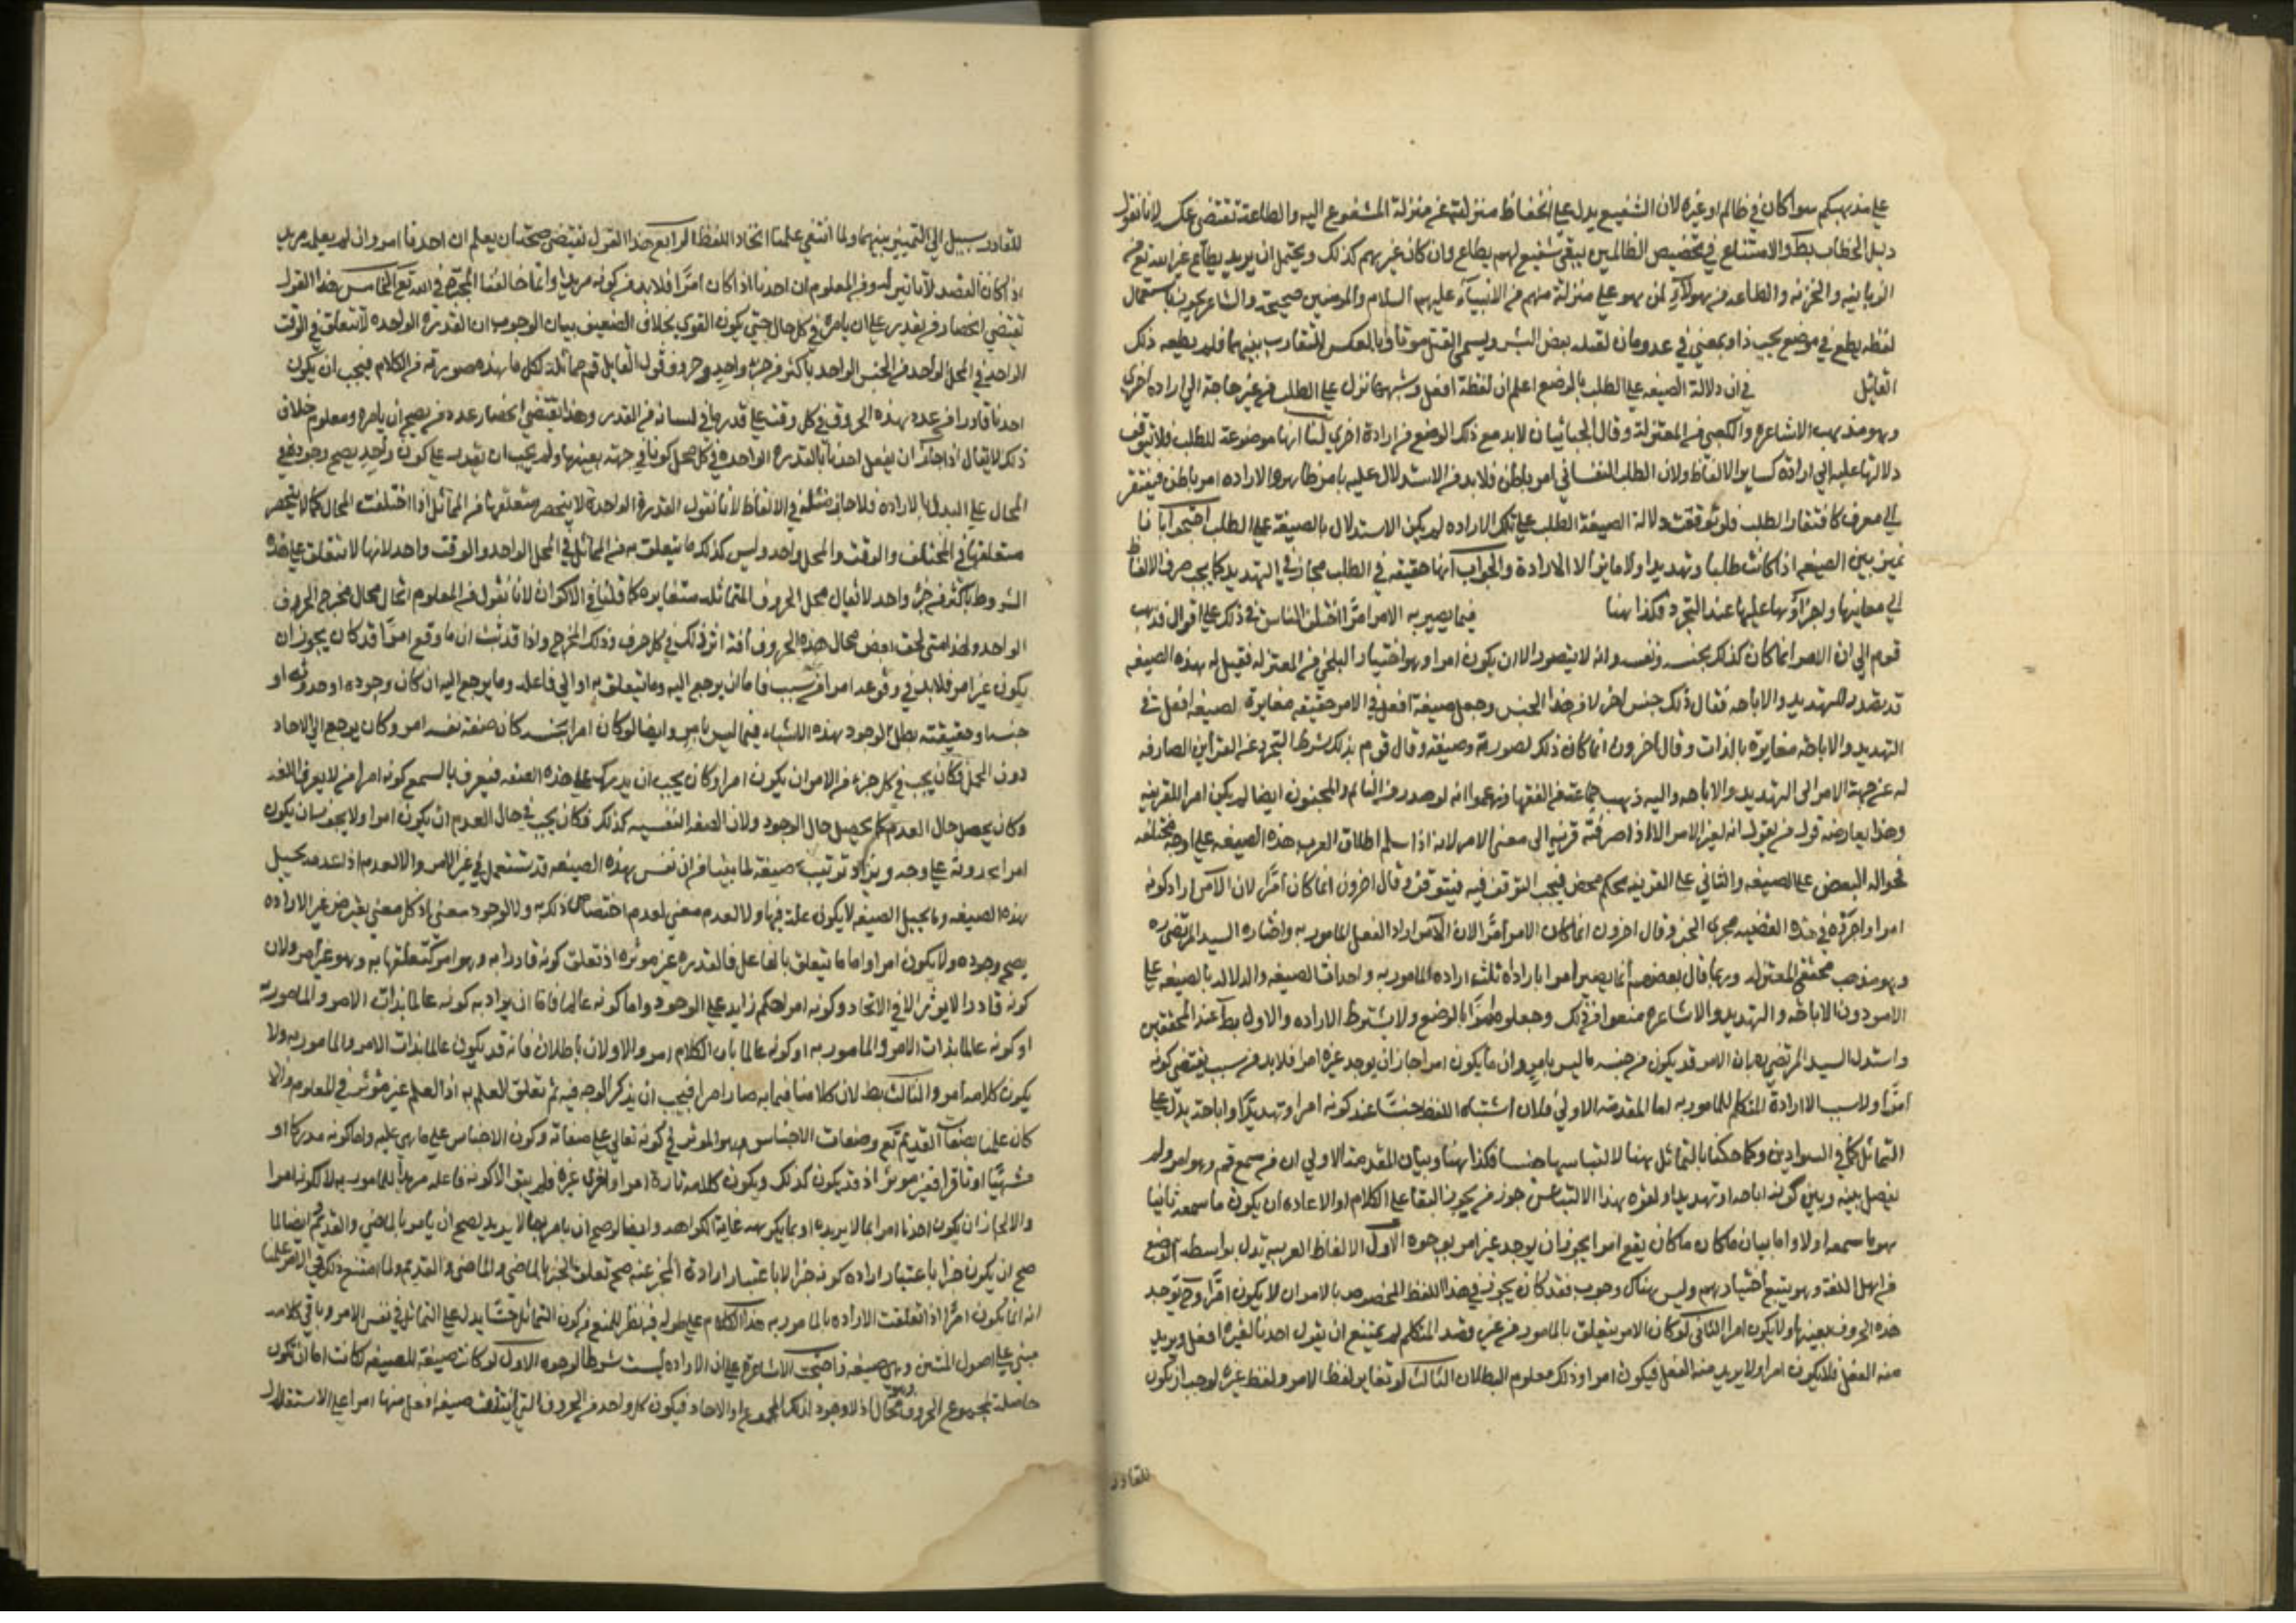 على مذهبكم سوا كان في ظالم او غيره لان الشفيع يدل على انخفاض منزلته عن منزلة المشفوع اليه والطاعة تقتضي عكسه لانا نقول
دليل الخطاب بط والامتناع في تخصيص الظالمين ينفي شفيع لهم يطاع وان كان غيرهم كذلك ويحتمل ان يريد يطاع غير الله تع من
الزبانية والخزنة والطاعة من هولاء لمن هو على منزلة منهم من الانبياء عليهم السلام والمومنين صحيحة والشاعر تجوز باستعمال
لفظة يطع في موضع يجب
القائل في ان دلالة الصيغه على الطلب بالوضع اعلم ان لفظة افعل وشبهها تدل على الطلب من غير حاجة الى اراده اخرى
وهو مذهب الاشاعره والكعبي من المعتزلة وقال الجبائيان لابد مع ذلك الوضع من ارادة اخرى لنا انها موضوعة للطلب فلا تتوقف
دلالتها عليه الى ارادة كساير الالفاظ ولان الطلب النفساني امر باطن فلابد من الاستدلال عليه بامر ظاهر والاراده امر باطن فيفتقر
الى معرف كافتقار الطلب فلو توقفت دلالة الصيغة على الطلب على تلك الاراده لم يكن الاستدلال بالصيغة على الطلب احتجوا بانا
نميز بين الصيغه اذا كانت طلبا وتهديدا ولا مايز الا الارادة والجواب انها حقيقه في الطلب مجاز في التهديد فكما يجب صرف الالفاظ
الى معانيها واجراؤها عليها عند التجرد فكذا هنا فيما يصير به الامر امرا اختلف الناس في ذلك على اقوال فذهب
قوم الى ان الامر انما كان كذلك بجنسه ونفسه وانه لا يتصور الا ان يكون امرا وهو اختيار البلخي من المعتزله فقيل له هذه الصيغه
قد تصدر للتهديد والاباحه فقال ذلك جنس اخر لا من هذا الجنس وجعل صيغة افعل في الامر حقيقه مغايرة لصيغة افعل في
التهديد والاباحه مغايرة بالذات وقال اخرون انما كان ذلك لصورته وصيغته وقال قوم بذلك بشرط التجرد عن القراين الصارفه
له عن جهة الامر الى التهديد والاباحه واليه ذهب جماعة من الفقها وزعموا انه لو صدر من النايم والمجنون ايضا لم يكن امرا للقرينه
وهذا يعارضه قول من يقول انه لغير الامر الا اذا صرفته قرينه الى معنى الامر لانه اذا سلم اطلاق العرب هذه الصيغه على اوجه مختلفه
فحواله البعض على الصيغه والثاني على القرينه تحكم محض فيجب التوقف فيه فيتوقف وقال اخرون انما كان امرا لان الامر اراد كونه
امرا واجروه في هذه القضيه مجرى الخبر وقال اخرون انما كان الامر امرا لان الامر اراد الفعل المامور به واختاره السيد المرتضى ره
وهو مذهب محققي المعتزله وربما قال بعضهم انما يصير امرا بارادات ثلث ارادة المامور به واحداث الصيغه والدلاله بالصيغه على
الامر دون الاباحه والتهديد والاشاعره منعوا من ذلك وجعلوه امرا بالوضع ولا يشترط الاراده والاول بط عند المحققين
واستدل السيد المرتضى بان الامر قد يكون من جنسه ما ليس بامر وان ما يكون امرا جاز ان يوجد غير امر فلابد من سبب يقتضي كونه
امرا ولا سبب الا ارادة المتكلم للمامور به اما المقدمة الاولى فلان اشتباه اللفظ حسا عند كونه امرا وتهديدا واباحة يدل على
التماثل كما في السوادين وكما حكمنا بالتماثل هنا لالتباسهما حسا فكذا هنا وبيان المقدمة الاولى ان من سمع قم وهو امر ولم
يفصل بينه وبين كونه اباحه او تهديدا ولقوه هذا الالتباس جوز من يجوز البقا على الكلام او الاعاده ان يكون ما سمعه ثانيا
هو ما سمعه اولا واما بيان ما كان يقع امرا يجوز ان يوجد غير امر بوجوه الاول الالفاظ العربيه تدل بواسطة الوضع
من اهل اللغة وهو يتبع اختيارهم وليس هناك وجوب فقد كان يجوز في هذا اللفظ المخصوص بالامر ان لا يكون امرا وح توجد
هذه الحروف بعينها ولا يكون امرا الثاني لو كان الامر يتعلق بالمامور من غير قصد المتكلم لم يمتنع ان يقول احدنا لغيره افعل ويريد
منه الفعل فلا يكون امرا ولا يريد منه الفعل فيكون امرا وذلك معلوم البطلان الثالث لو تغاير لفظ الامر ولفظ غيره لوجب ان يكون
للقادر
للقادر سبيل الى التمييز بينهما ولما انتفى علمنا اتحاد اللفظ الرابع هذا القول يقتضي صحة ان يعلم ان احدنا امر وان لم يعلم مريد
اذ كان القصد لا تاثير له ومن المعلوم ان احدنا اذا كان امرا فلابد من كونه مريدا وانما خالفنا المجبرة في الله تع الخامس هذا القول
يقتضي انحصار من يقدر على ان يامره في كل حال حتى يكون القوي بخلاف الضعيف بيان الوجوب ان القدرة الواحده لا تتعلق في الوقت
الواحد في المحل الواحد من الجنس الواحد باكثر من جزء واحد وحروف قول القايل قم مماثلة لكل ما هذه صورته من الكلام فيجب ان يكون
احدنا قادرا من عدد هذه الحروف في كل وقت على قدر ما في لسانه من القدر وهذا يقتضي انحصار عدد من يصح ان يامره ومعلوم خلاف
ذلك لا يقال اذا جاز ان يفعل احدنا بالقدره الواحده في كل محل كونا في جهة بعينها ولم يجب ان يقدر على كون واحد يصح وجوده في
المحال على البدل بالاراده فلا جاز مثله في الالفاظ لانا نقول القدرة الواحدة لا ينحصر متعلقها من المماثل اذا اختلفت المحال كما لا ينحصر
متعلقها في المختلف والوقت والمحل واحد وليس كذلك ما يتعلق به من المماثل في المحل الواحد والوقت واحد لانها لا تتعلق على هذه
الشروط باكثر من جزء واحد لا يقال محل الحروف المتماثله متغايره كما قلنا في الاكوان لانا نقول من المعلوم اتحاد محال مخرج الحروف
الواحد ولهذا متى لحق بعض محال هذه الحروف آفة اثر ذلك في كل حرف وذلك المخرج واذا قد ثبت ان ما وقع امرا قد كان يجوز ان
يكون غير امر فلابد في وقوعه امرا من سبب فاما ان يرجع اليه وما يتعلق به او الى فاعله وما يرجع اليه ان كان وجوده او حدوثه او
جنسه او حقيقته بطل لوجود هذه الاشياء فيما ليس بامر وايضا لو كان امرا بجنسه كان صفة نفسه امر وكان يرجع الى الاحاد
دون الجمل فكان يجب في كل جزء من الامر ان يكون امرا وكان يجب ان يدرك على هذه الصفه فيعرف بالسمع كونه امرا من لا يعرف اللغه
وكان يحصل حال العدم كما يحصل حال الوجود ولان الصفه النفسيه كذلك فكان يجب في حال العدم ان يكون امرا ولا يجوز ان يكون
امرا لحدوثه على وجه وتزاد ترتيب صيغة لما بينا من ان نفس هذه الصيغه قد تستعمل في غير الامر ولا لعدم اذ عدمه يحيل
هذه الصيغه وما يحيل الصيغه لا يكون علة فيها ولا لعدم معنى لعدم اختصاص ذلك به ولا لوجود معنى اذ كل معنى يفرض غير الاراده
يصح وجوده ولا يكون امرا واما ما يتعلق بالفاعل فالقدره غير موثره اذ تعلق كونه قادرا به وهو امر كتعلقها به وهو غير امر ولان
كونه قادرا لا يوثر الا في الاتحاد وكونه امرا حكم زايد على الوجود واما كونه عالما فاما ان يراد به كونه عالما بذات الامر والمامور به
او كونه عالما بذات الامر والمامور به او كونه عالما بان الكلام امر والاولان باطلان فانه قد يكون عالما بذات الامر والمامور به ولا
يكون كلامه امرا والثالث بط لان كلامنا فيما به صار امرا فيجب ان يذكر الوجه فيه ثم تعلق العلم به اذ العلم غير موثر في المعلوم والا
كان علمنا بصفات القديم تع وصفات الاجناس هو الموثر في كونه تعالى على صفاته وكون الاجناس على ما هي عليه واما كونه مدركا او
مشتهيا او نافرا فغير موثر اذ قد يكون كذلك ويكون كلامه تارة امرا واخرى غيره فلم يبق الا كونه فاعله مريدا للمامور به لا لكونه امرا
والا لجاز ان يكون احدنا امرا بما لا يريده او بما يكرهه غاية الكراهه وايضا لو صح ان يامر بما لا يريد لصح ان يامر بالماضي والقديم ايضا لما
صح ان يكون خبرا باعتبار اراده كونه خبرا لا باعتبار ارادة المخبر عنه صح تعلق الخبر بالماضي والقديم ولما امتنع ذلك في الامر علمنا
انه انما يكون امرا اذا تعلقت الاراده بالمامور به هذا الكلام على طوله فيه نظر للمنع من كون التماثل حسا يدل على التماثل في نفس الامر وباقي كلامه
مبني على اصول المثبتين وهي ضعيفة واحتجت الاشاعرة على ان الاراده ليست شرطا لوجوه الاول لو كانت صفة للصيغه لكانت اما ان تكون
حاصلة لمجموع الحروف وهو محال اذ لا وجود لذلك المجموع او لاحاد فيكون كل واحد من الحروف التي ائتلفت صيغة افعل منها امرا على الاستقلال